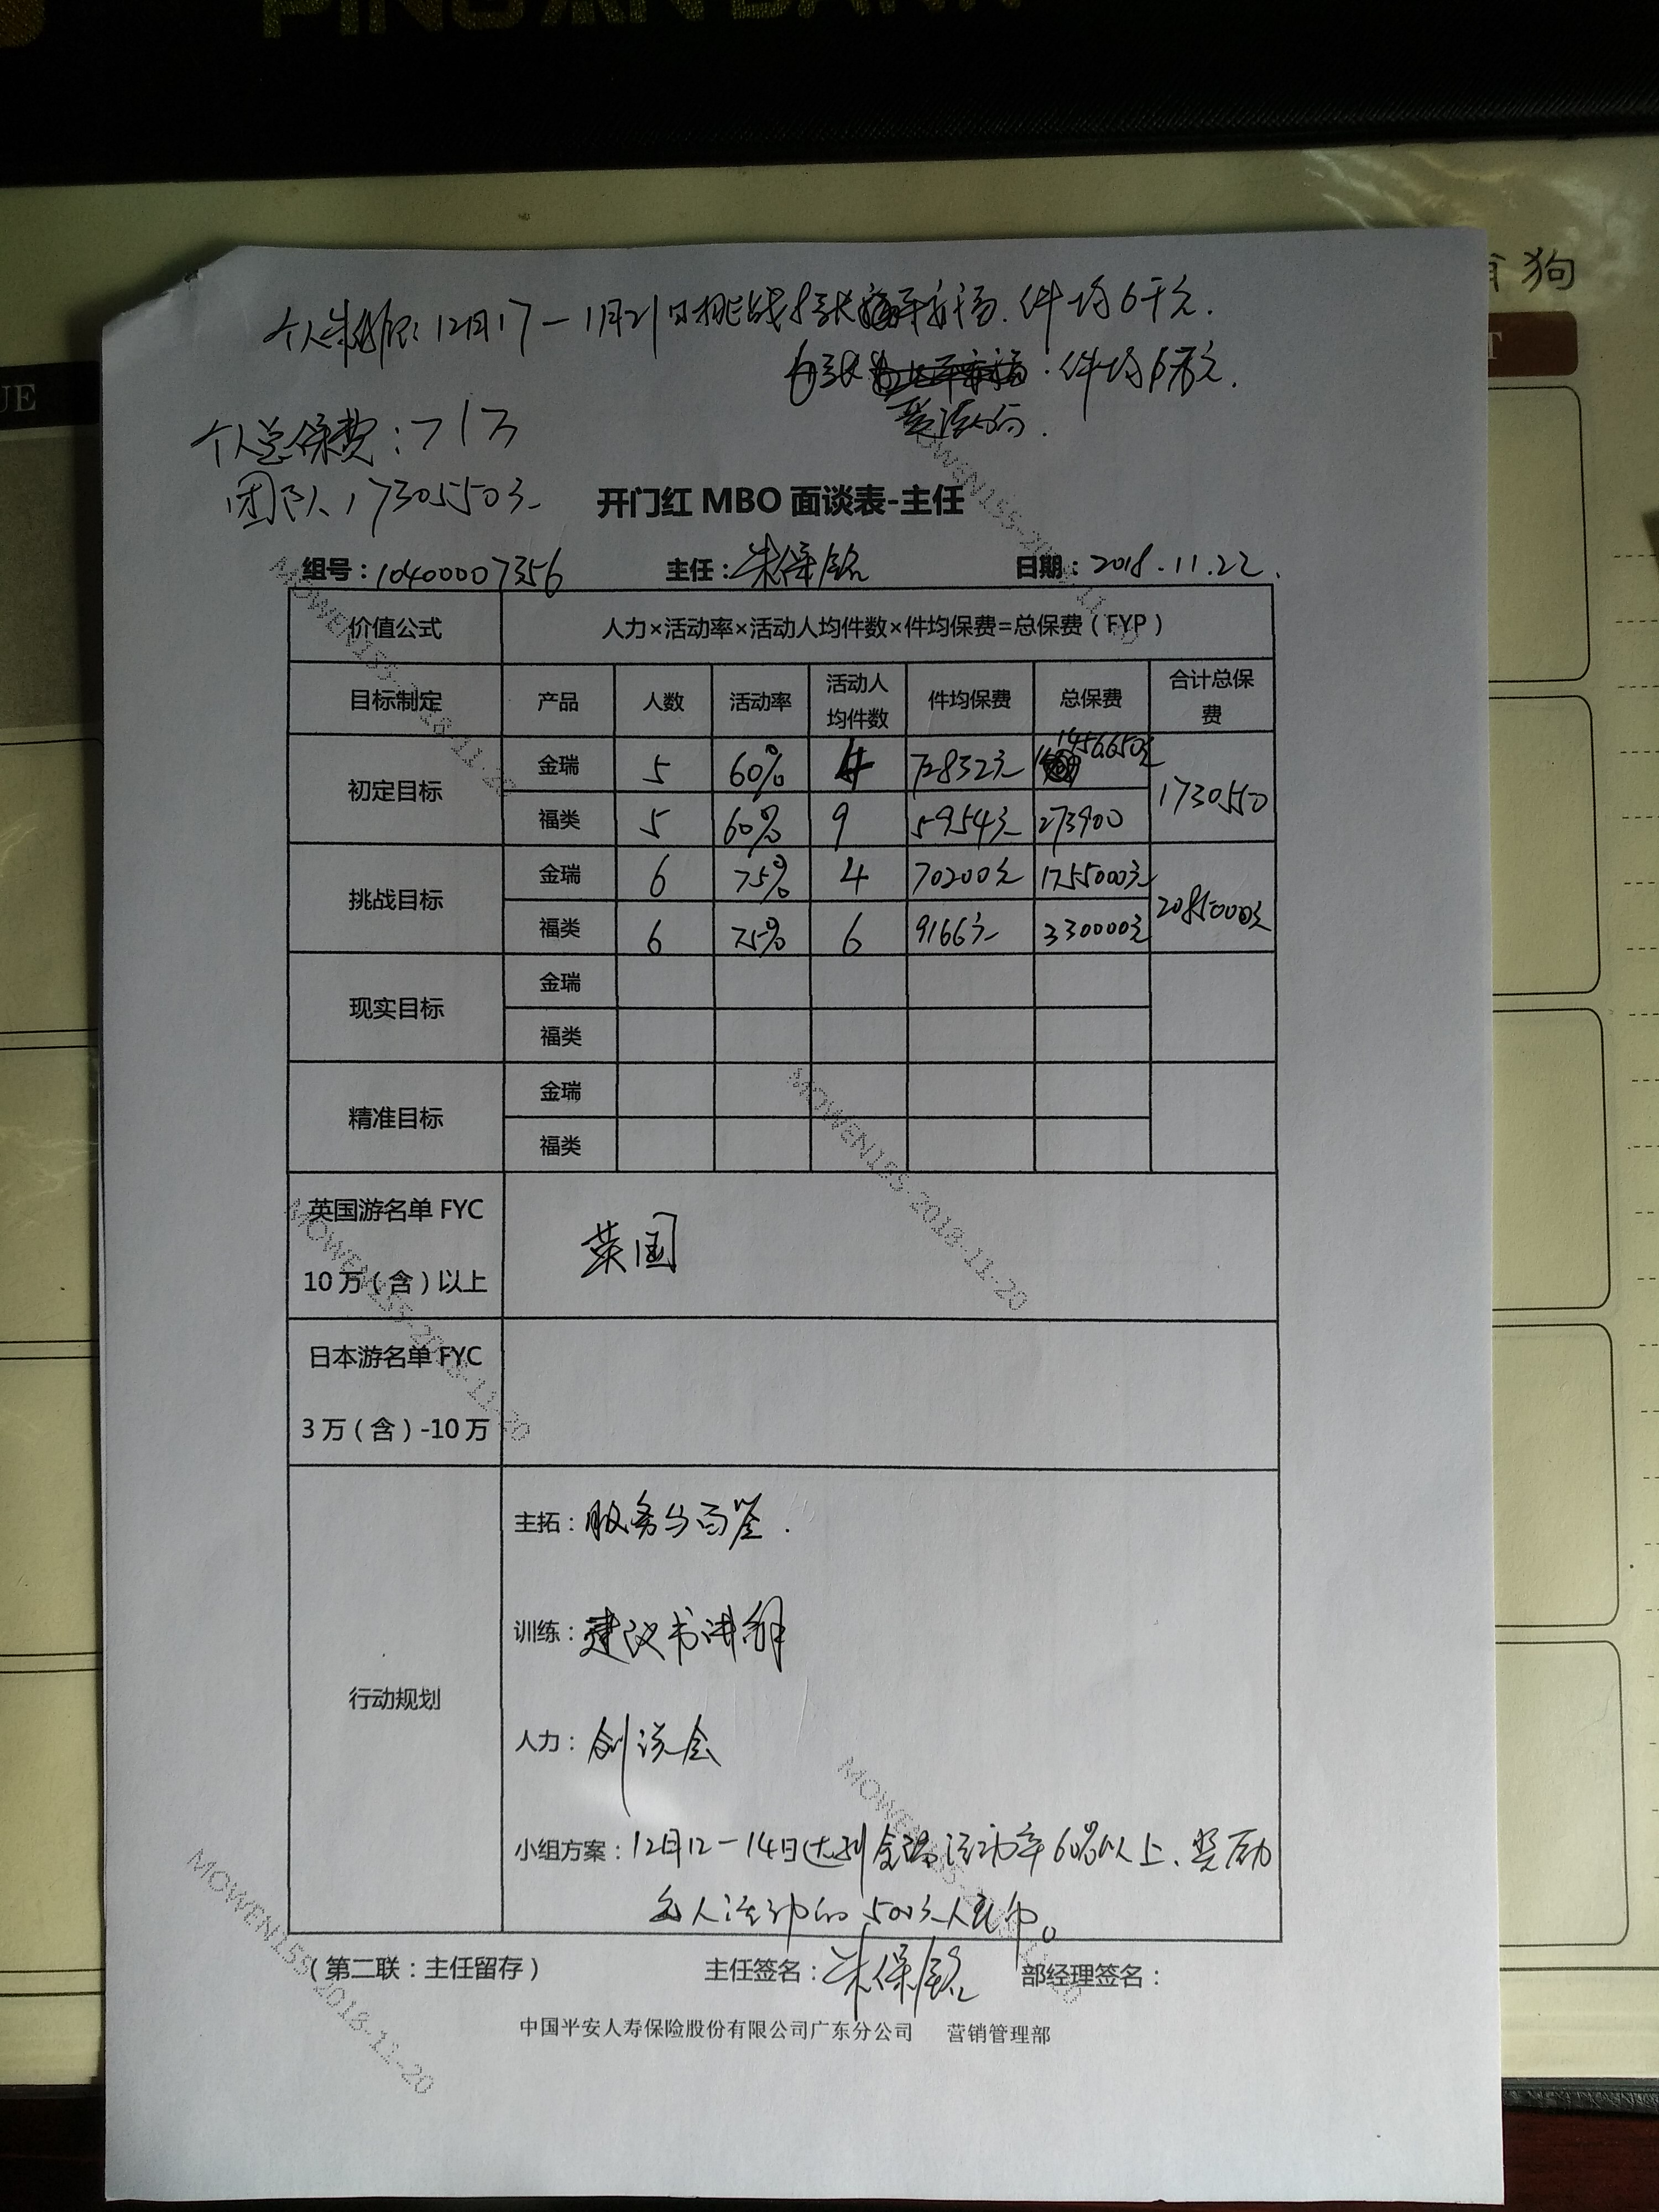 PINGAN BANK
狗
UE
T
个人 12月17-1月21日挑战 件均6千元.
件均6万元.
个人总保费:71万
团队1730550元
开门红 MBO 面谈表-主任
组号:10400007356 主任:朱保铭 日期:2018.11.22.
价值公式 人力×活动率×活动人均件数×件均保费=总保费(FYP)
目标制定 产品 人数 活动率 活动人均件数 件均保费 总保费 合计总保费
初定目标 金瑞 5 60% 4 72832元 1456650元 1730550
福类 5 60% 9 273900
挑战目标 金瑞 6 75% 4 70200元 1755000元 2085000元
福类 6 75% 6 9166元 330000元
现实目标 金瑞
福类
精准目标 金瑞
福类
英国游名单 FYC 10 万(含)以上 英国
日本游名单 FYC 3 万(含)-10 万
行动规划
主拓:服务
训练:建议书讲解
人力:创说会
小组方案:12月12-14日达到金瑞活动率60%以上、奖励
人活动的500元人民币。
(第二联:主任留存) 主任签名:朱保铭 部经理签名:
中国平安人寿保险股份有限公司广东分公司 营销管理部
MOWEN155-2018-11-20
MOWEN155-2018-11-20
MOWEN155-2018-11-20
MOWEN155-2018-11-20
MOWEN155-2018-11-20
MOWEN155-2018-11-20